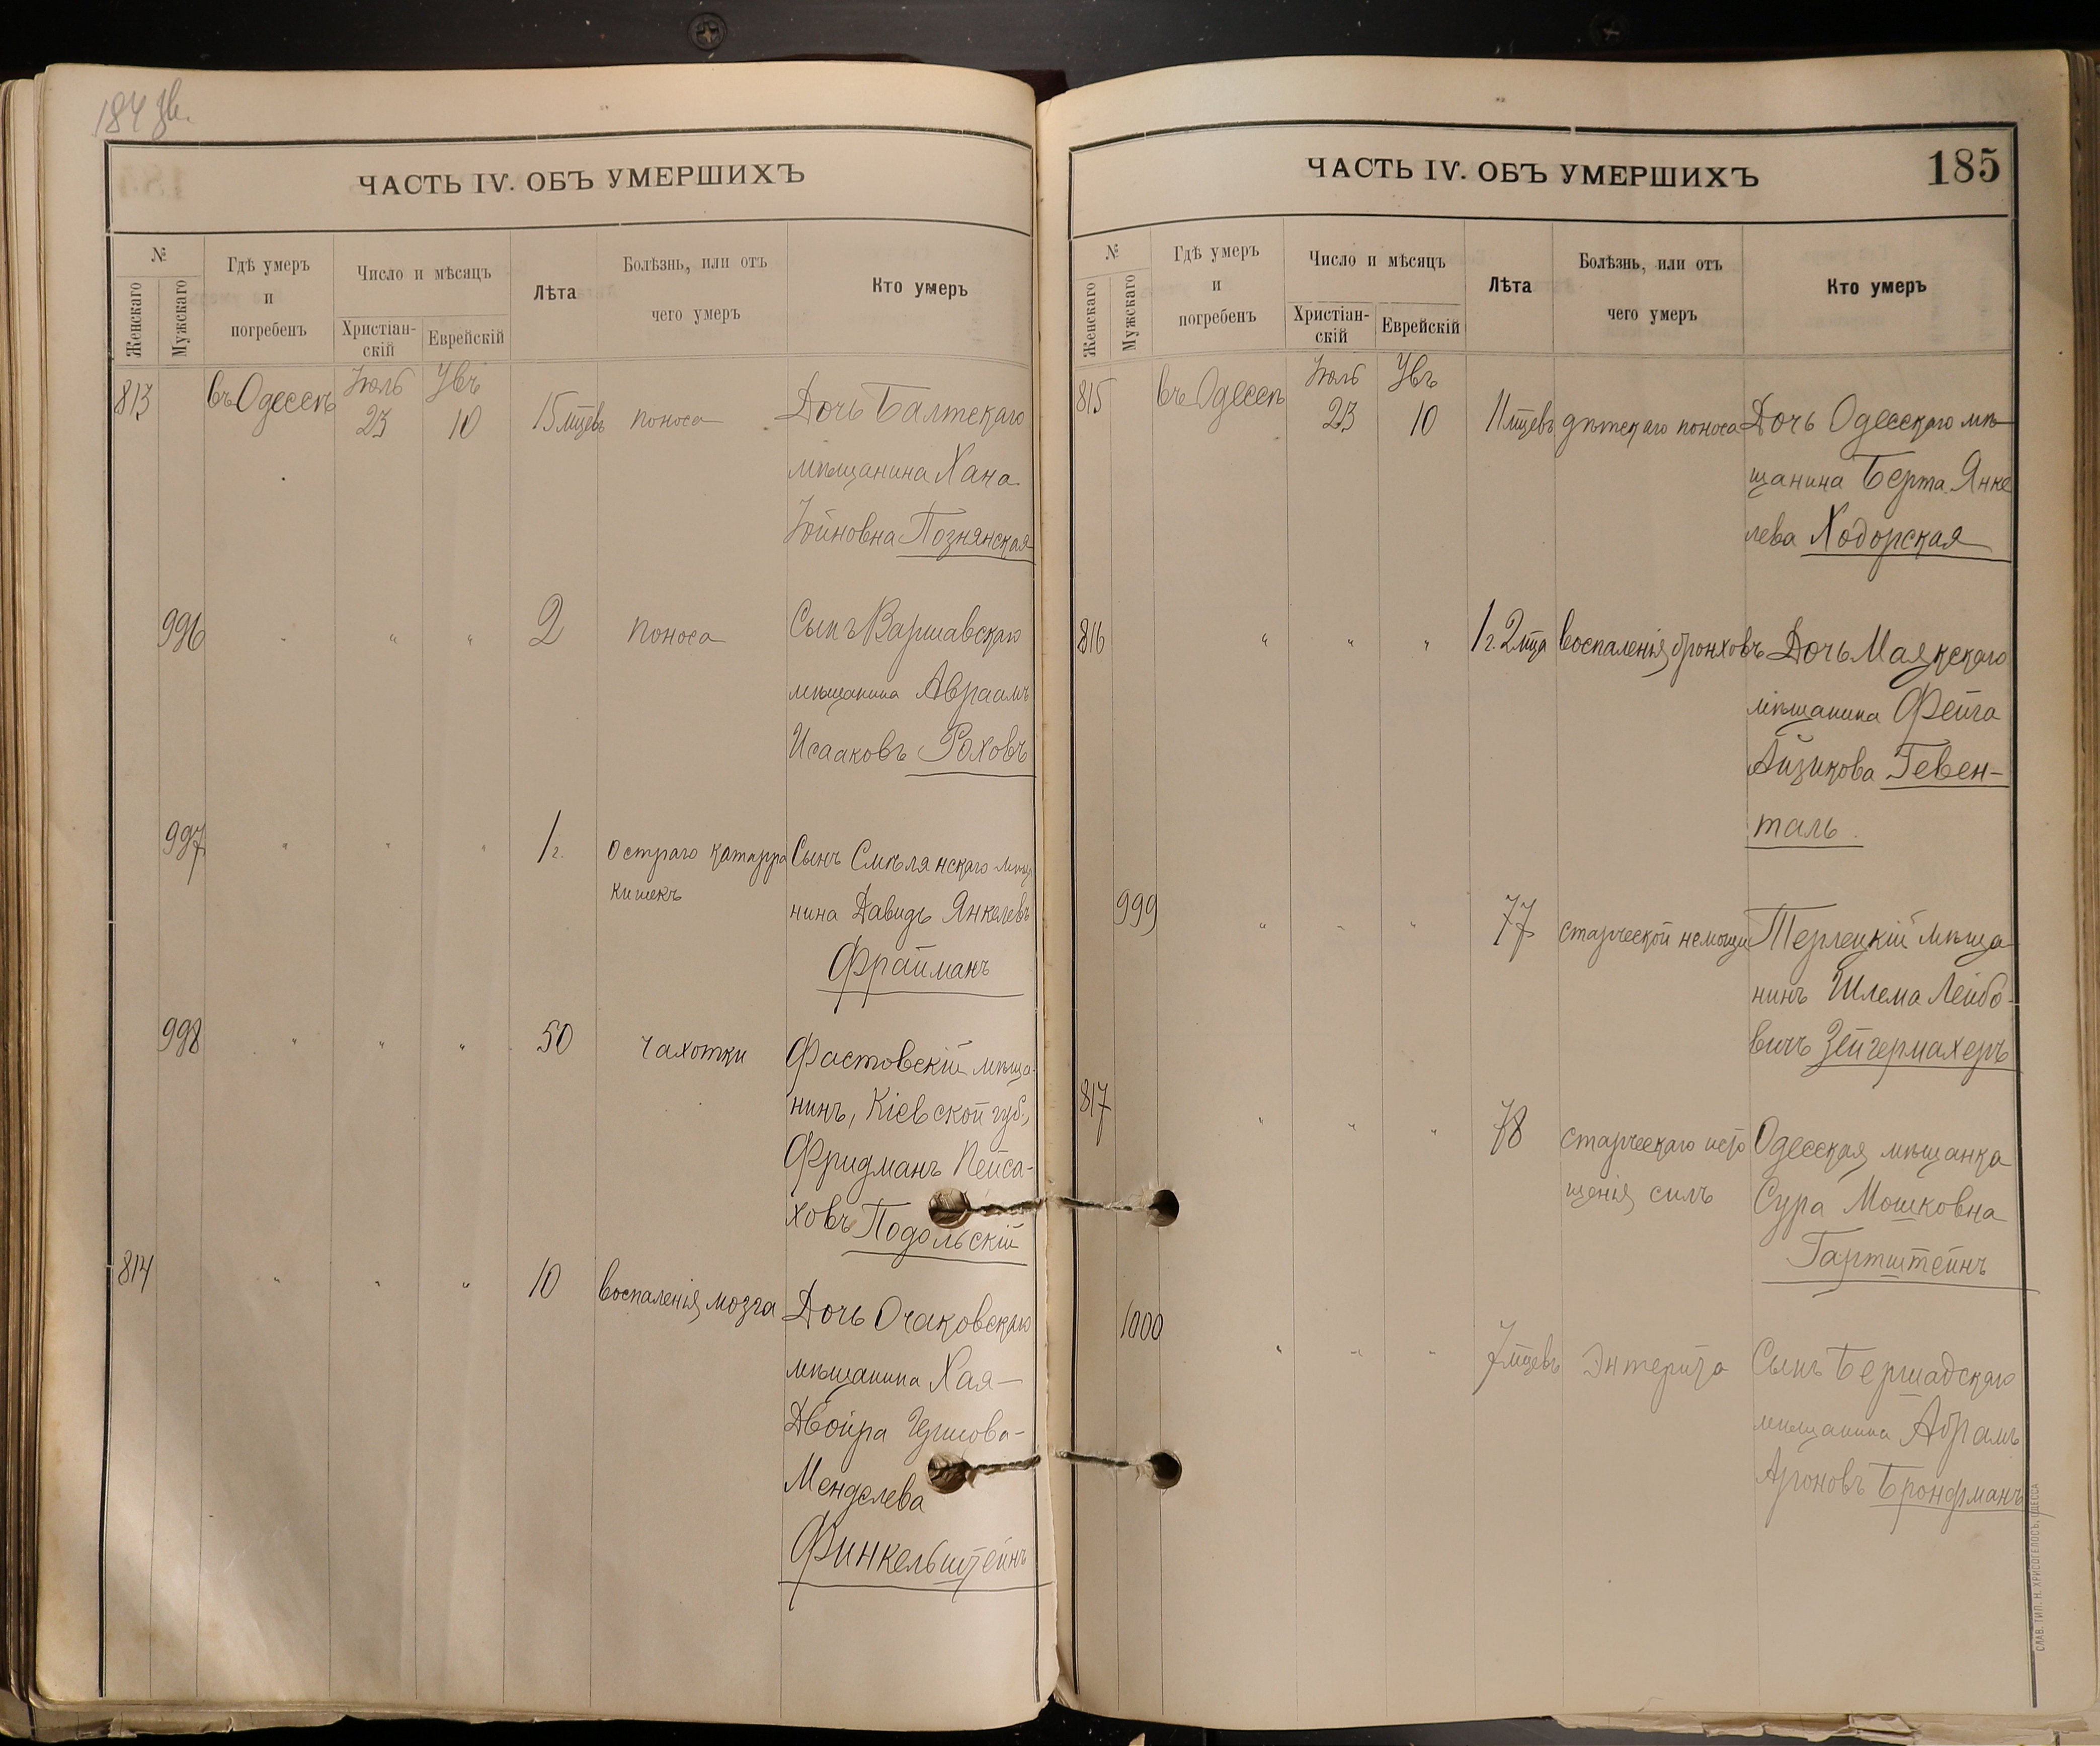 184 зв.
ЧАСТЬ IV. ОБЪ УМЕРШИХЪ
№
Женскаго
Мужскаго
Гдѣ умеръ
и
погребенъ
Число и мѣсяцъ
Христіан-
скій
Еврейскій
Лѣта
Болѣзнь, или отъ
чего умеръ
Кто умеръ
813 въ Одессѣ Іюль 23 Увъ 10 15 мцевъ поноса Дочь Балтскаго
мѣщанина Хана
Іойновна Познянская
996 " " " 2 поноса Сынъ Варшавскаго
мѣщанина Авраамъ
Исааковъ Роховъ
997 " " " 1 г. Остраго катарра Сынъ Смѣлянскаго мѣща
кишекъ
нина Давидъ Янкелевъ
Фрайманъ
998 " " " 50 чахотки Фастовскій мѣща-
нинъ, Кіевской губ.,
Фридманъ Пейса-
ховъ Подольскій
814 " " " 10 воспаленія мозга Дочь Очаковскаго
мѣщанина Хая-
Двойра
Менделева
Финкельштейнъ
ЧАСТЬ IV. ОБЪ УМЕРШИХЪ
185
№
Женскаго
Мужскаго
Гдѣ умеръ
и
погребенъ
Число и мѣсяцъ
Христіан-
скій
Еврейскій
Лѣта
Болѣзнь, или отъ
чего умеръ
Кто умеръ
815 въ Одессѣ Іюль 23 Увъ 10 11 мцевъ дѣтскаго поноса Дочь Одесскаго мѣ-
щанина Берта Янке
лева Ходорская
816 " " " 1 г. 2 мца воспаленія бронховъ Дочь Маякскаго
мѣщанина Фейга
Айзикова Гевен-
таль.
999 " " " 77 старческой немощи Терлецкій мѣща-
нинъ Шлема Лейбо-
вичъ Зейгермахеръ
817 " " " 78 старческаго исто Одесская мѣщанка
щенія силъ Сура Мошковна
Гартштейнъ
1000 " " " 7 мцевъ Энтерита Сынъ Бершадскаго
мѣщанина Абрамъ
Ароновъ Бронфманъ
СЛАВ. ТИП. Н. ХРИСОГЕЛОСЪ, ОДЕССА